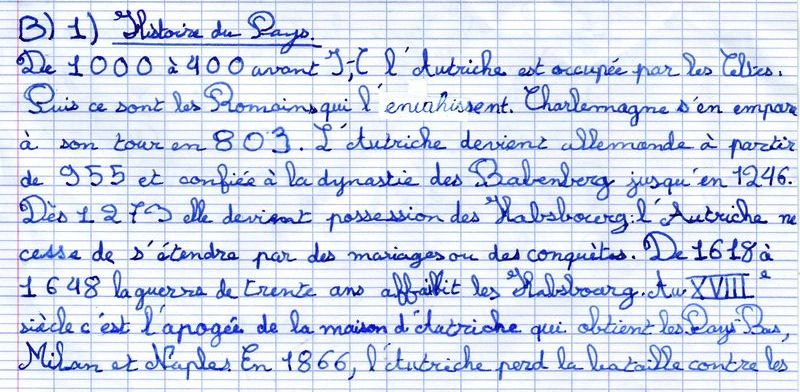 B) 1) Histoire du Pays.
De 1000 à 400 avant J,C l'Autriche est occupée par les Celtes.
Puis ce sont les Romains qui l'envahissent. Charlemagne s'en empare
à son tour en 803. L'Autriche devient allemande à partir
de 955 et confiée à la dynastie des Babenberg jusqu'en 1246.
Dès 1273 elle devient possession des Habsbourg: l'Autriche ne
cesse de s'étendre par des mariages ou des conquêtes. De 1618 à
1648 la guerre de trente ans affaiblit les Habsbourg. Au XVIIIe
siècle c'est l'apogée de la maison d'Autriche qui obtient les Pays Bas,
Milan et Naples. En 1866, l'Autriche perd la bataille contre les